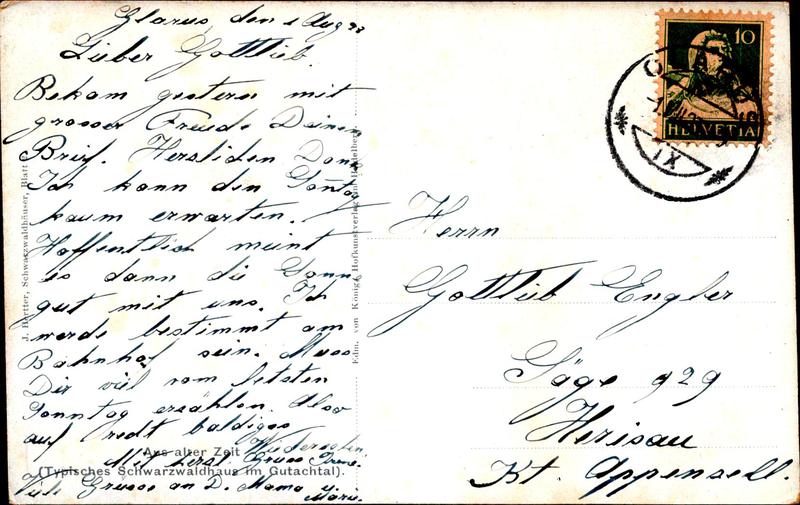 Glarus, den 1 Aug
Lieber Gottlieb.
Bekam gestern mit
grosser Freude Deinen
Brief. Herzlichen Dank
Ich kann den Sonntag
kaum erwarten.
Hoffentlich meint
es dann die Sonne
gut mit uns. Ich
werde bestimmt am
Bahnhof sein. Muss
Dir viel vom letzten
Sonntag erzählen. Also
auf recht baldiges
Wiedersehn.
Mit herzl. Gruss
Viele Grüsse an D. Mama
Marie.
Aus alter Zeit
(Typisches Schwarzwaldhaus im Gutachtal).
J. Hertter, Schwarzwaldhäuser, Blatt
Edm. von Königs Hofkunstverlag in Heidelberg
10
HELVETIA
IX
Herrn
Gottlieb Engler
Säge 929
Herisau
Kt. Appenzell.